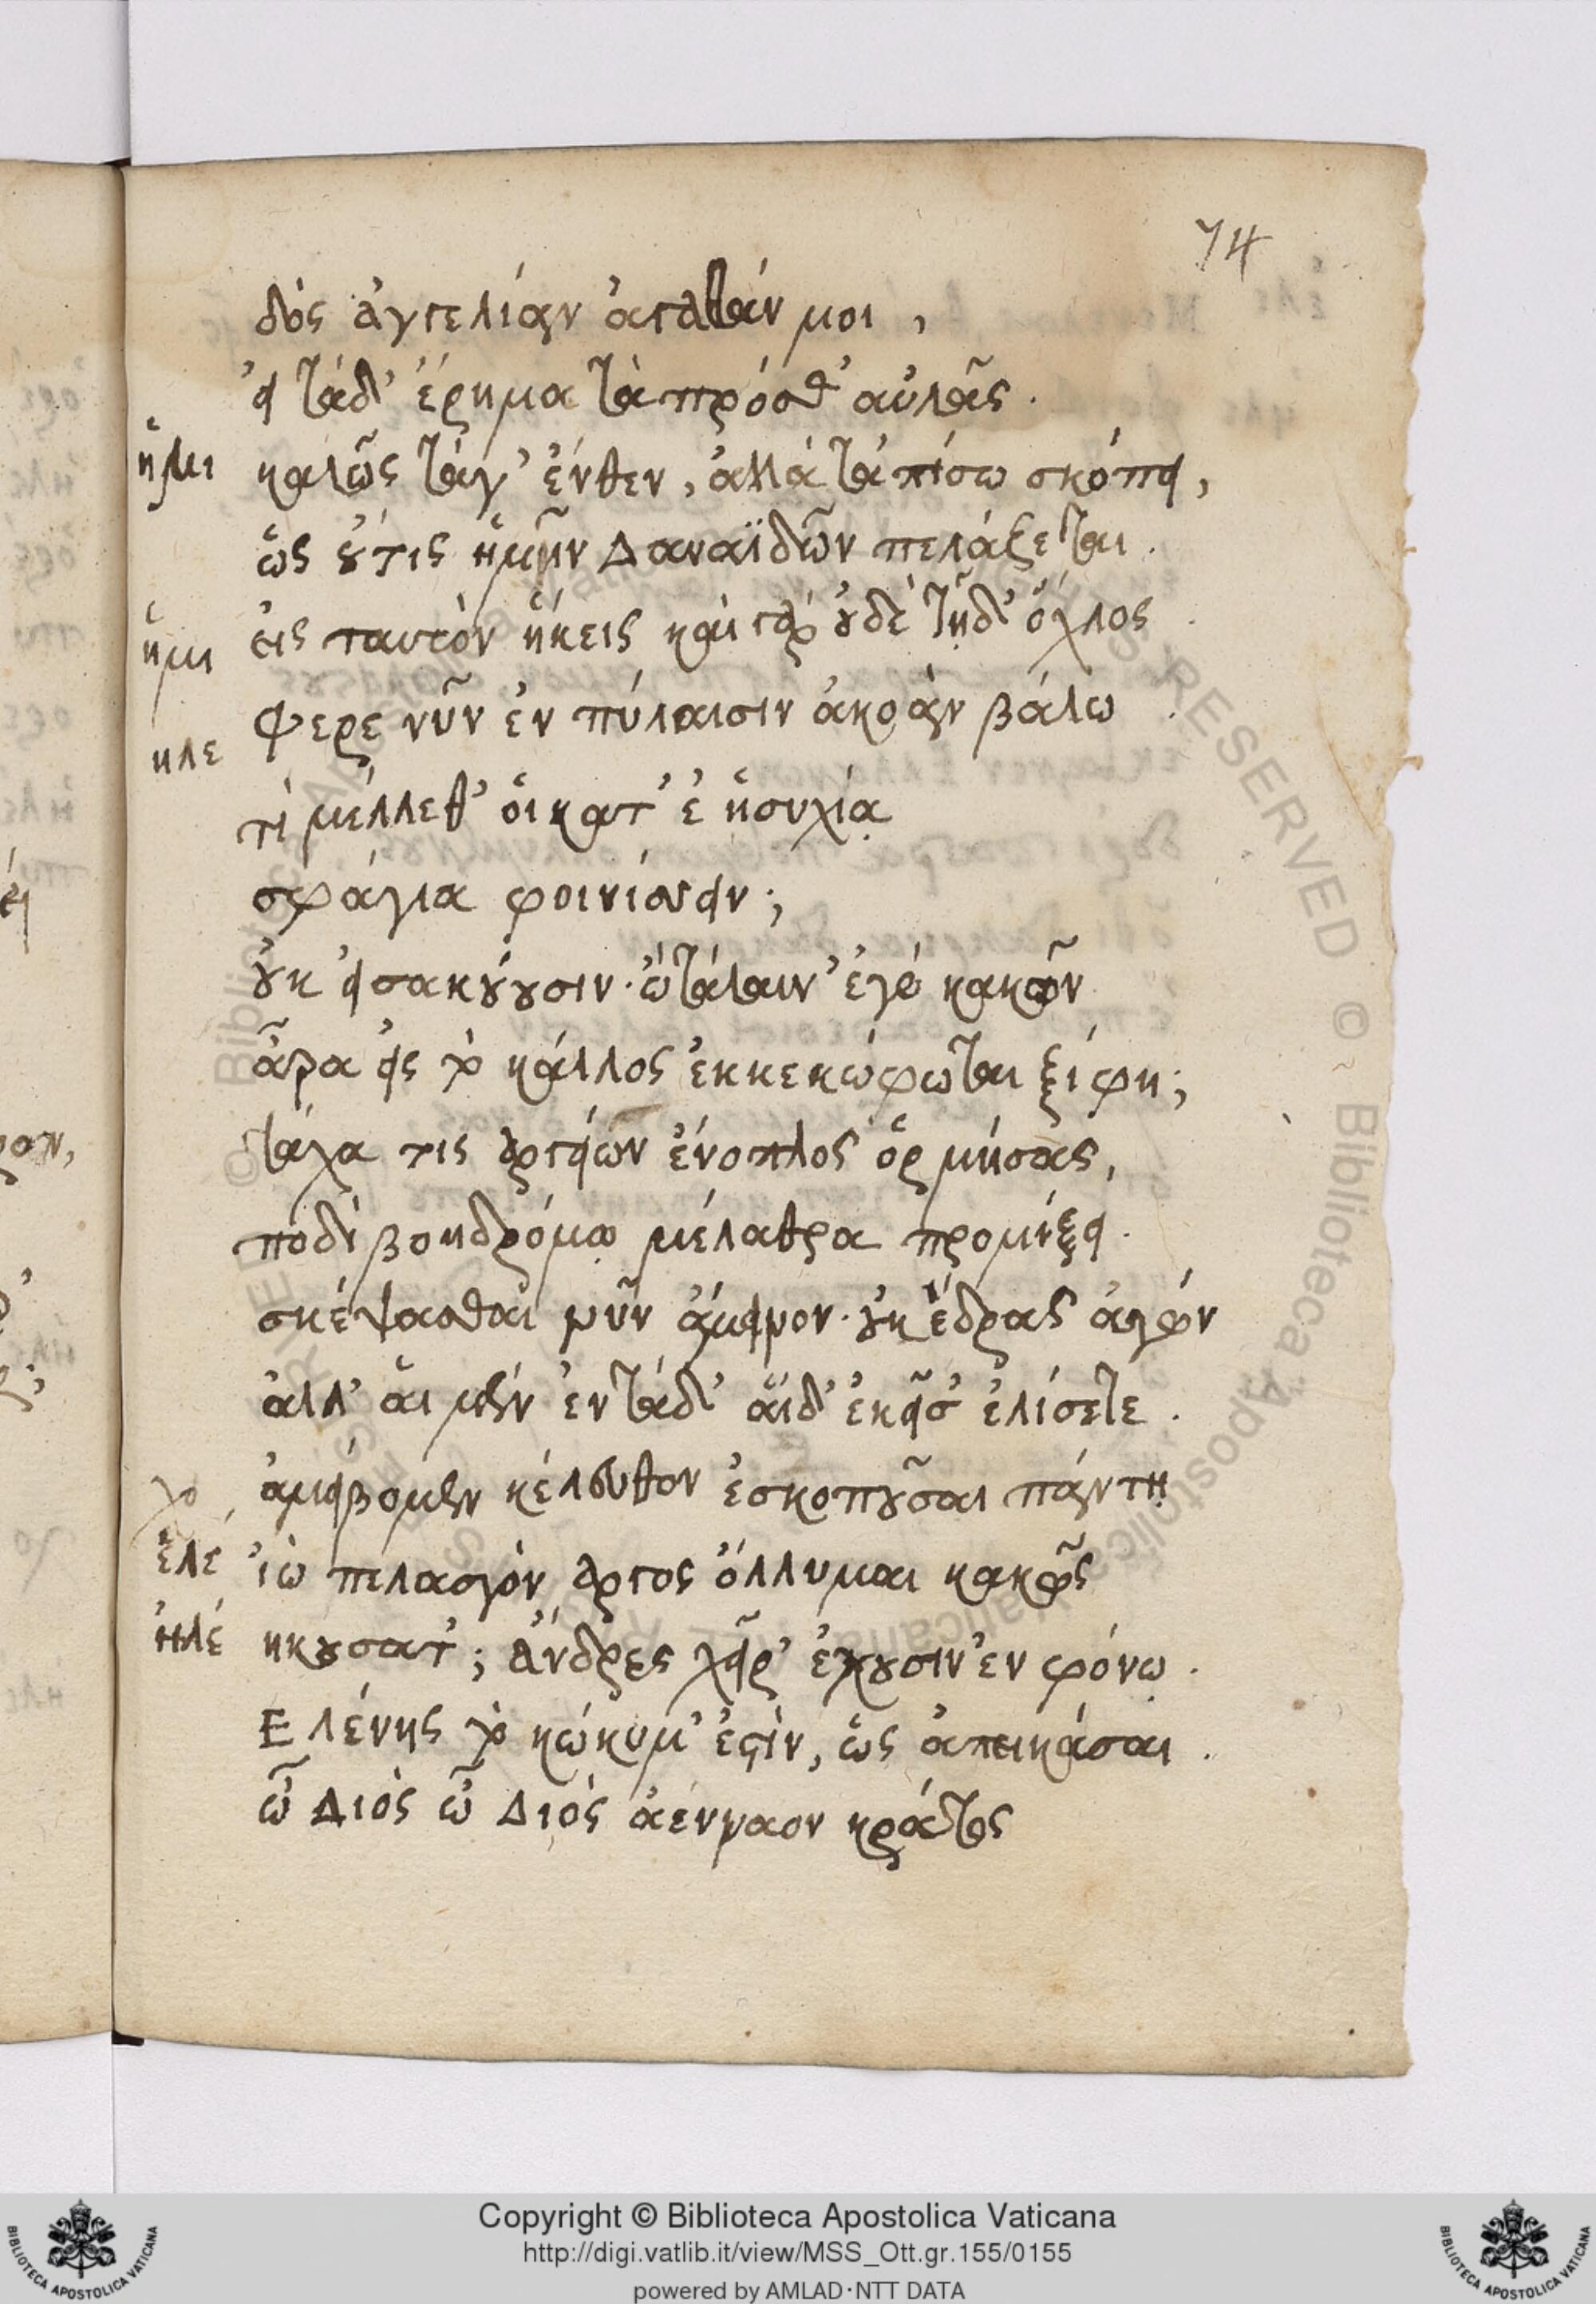 74
δὸς ἀγγελίαν ἀγαθάν μοι,
εἰ τάδ' ἔρημα τὰ πρόσθ' αὐλᾶς.
ἡμι καλῶς τάγ' ἔνθεν, ἀλλὰ τἀπίσω σκόπει,
ὡς οὔτις ἡμῖν Δαναϊδῶν πελάζεται.
ἡμι εἰς ταυτὸν ἥκεις καὶ γὰρ οὐδὲ τῇδ' ὄχλος.
ηλε Φερε νῦν ἐν πύλαισιν ἀκοὰν βάλω.
τί μέλλεθ' οἱ κατ' ἐ ἡσυχίᾳ
σφάγια φοινίσσειν;
οὐκ εἰσακούουσιν. ὦ τάλαιν' ἐγὼ κακῶν
ἆρα εἰς τὸ κάλλος ἐκκεκώφωται ξίφη;
τάχα τις ἀργείων ἔνοπλος ὁρμήσας,
ποδὶ βοηδρόμῳ μέλαθρα προμίξει.
σκέψασθαι νῦν ἄμεινον. οὐκ ἕδρας ἀγών
ἀλλ' αἱ μὲν ἐν τάδ' αἵδ' ἐκεῖσ' ἑλίσετε.
χο ἀμείβομεν κέλευθον ἐσκοποῦσαι πάντῃ
ἑλέ ἰὼ πελασγὸν ἄργος ὄλλυμαι κακῶς
ἠλέ ηκουσατ'; ἄνδρες χεῖρ' ἔχουσιν ἐν φόνῳ.
Ελένης τὸ κώκυμ' ἐστὶν, ὡς ἀπεικάσαι.
ὦ Διὸς ὦ Διὸς ἀένναον κράτος
Copyright © Biblioteca Apostolica Vaticana
http://digi.vatlib.it/view/MSS_Ott.gr.155/0155
powered by AMLAD·NTT DATA